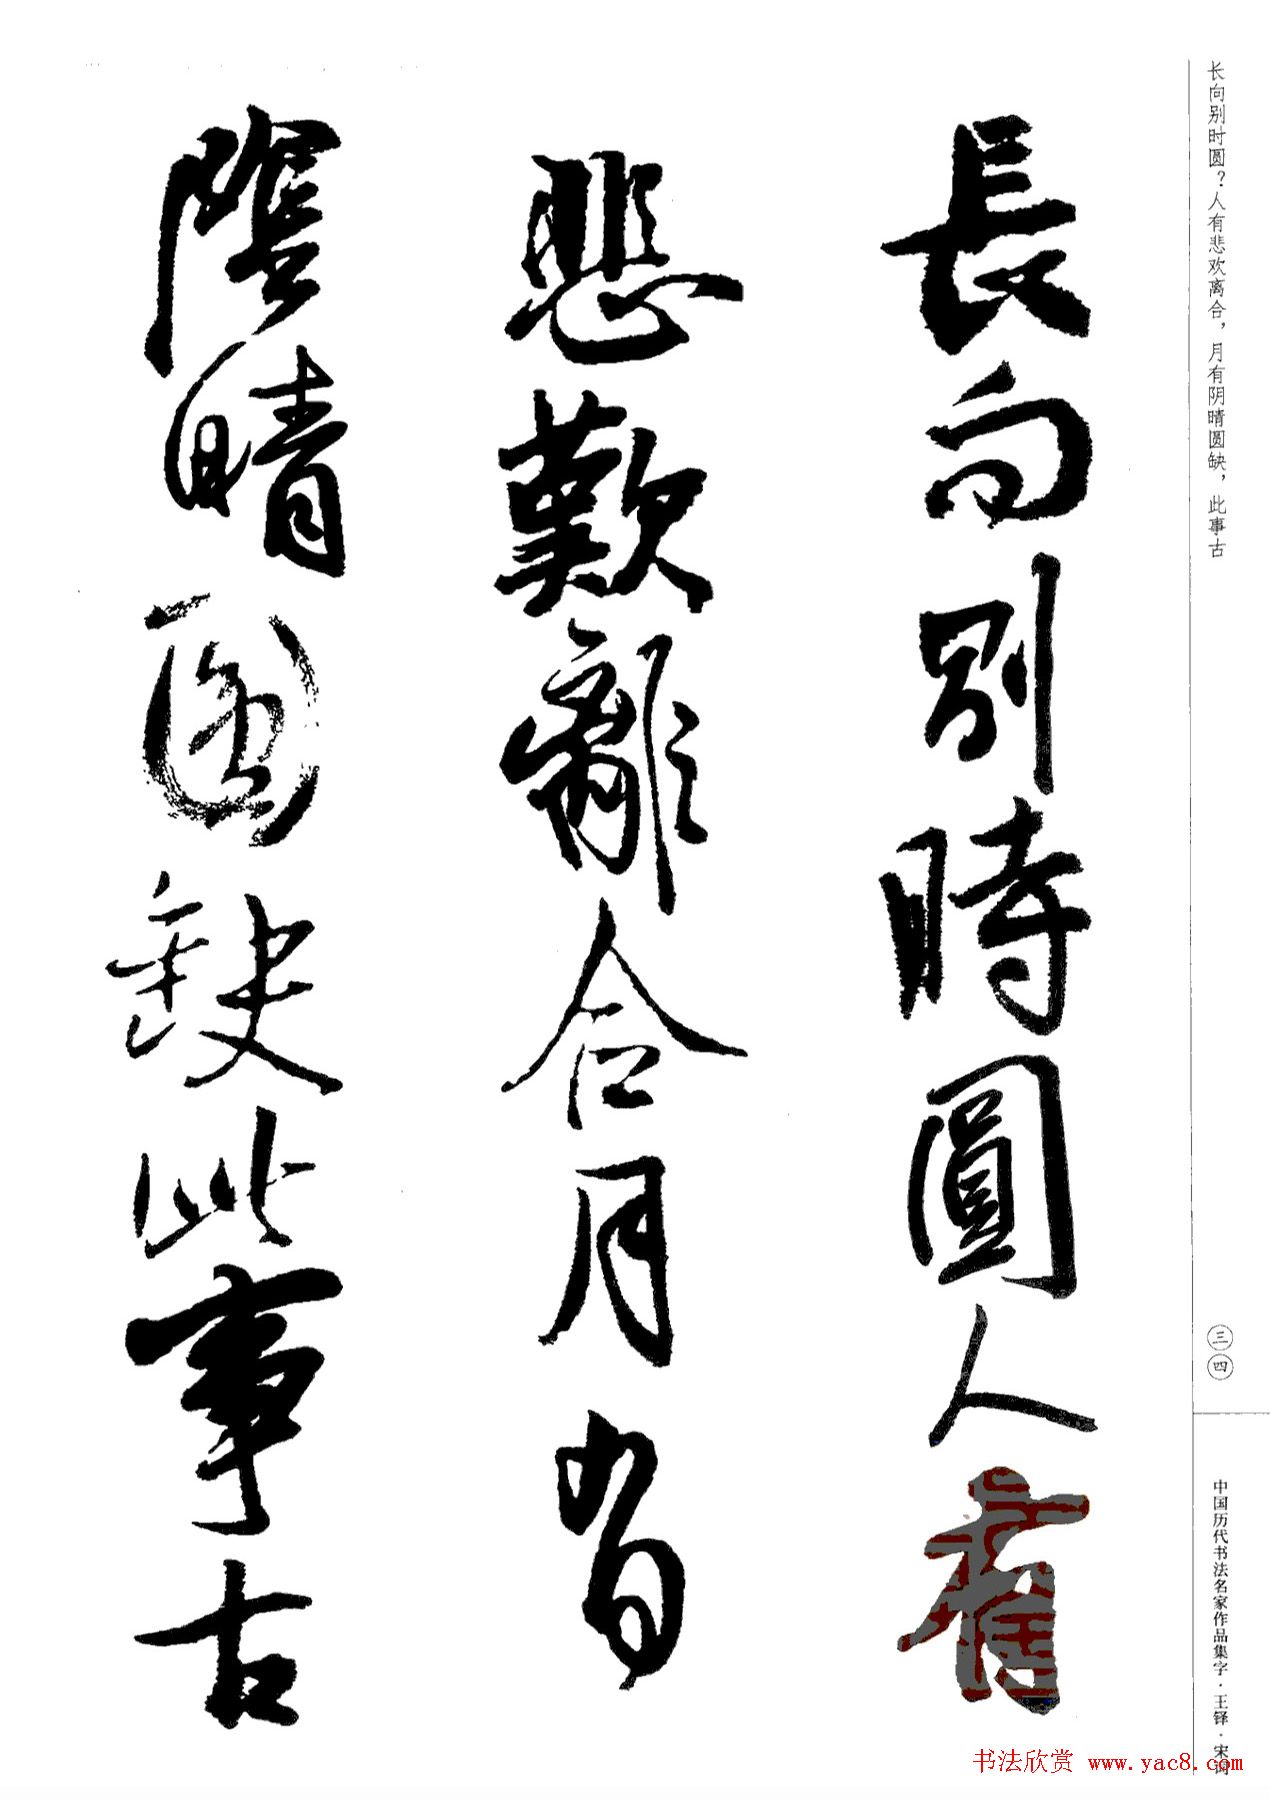 长向别时圆？人有悲欢离合，月有阴晴圆缺，此事古
長向別時圓人有
悲歡離合月有
陰晴圓缺此事古
三四
中国历代书法名家作品集字·王铎·宋词
书法欣赏 www.yac8.com